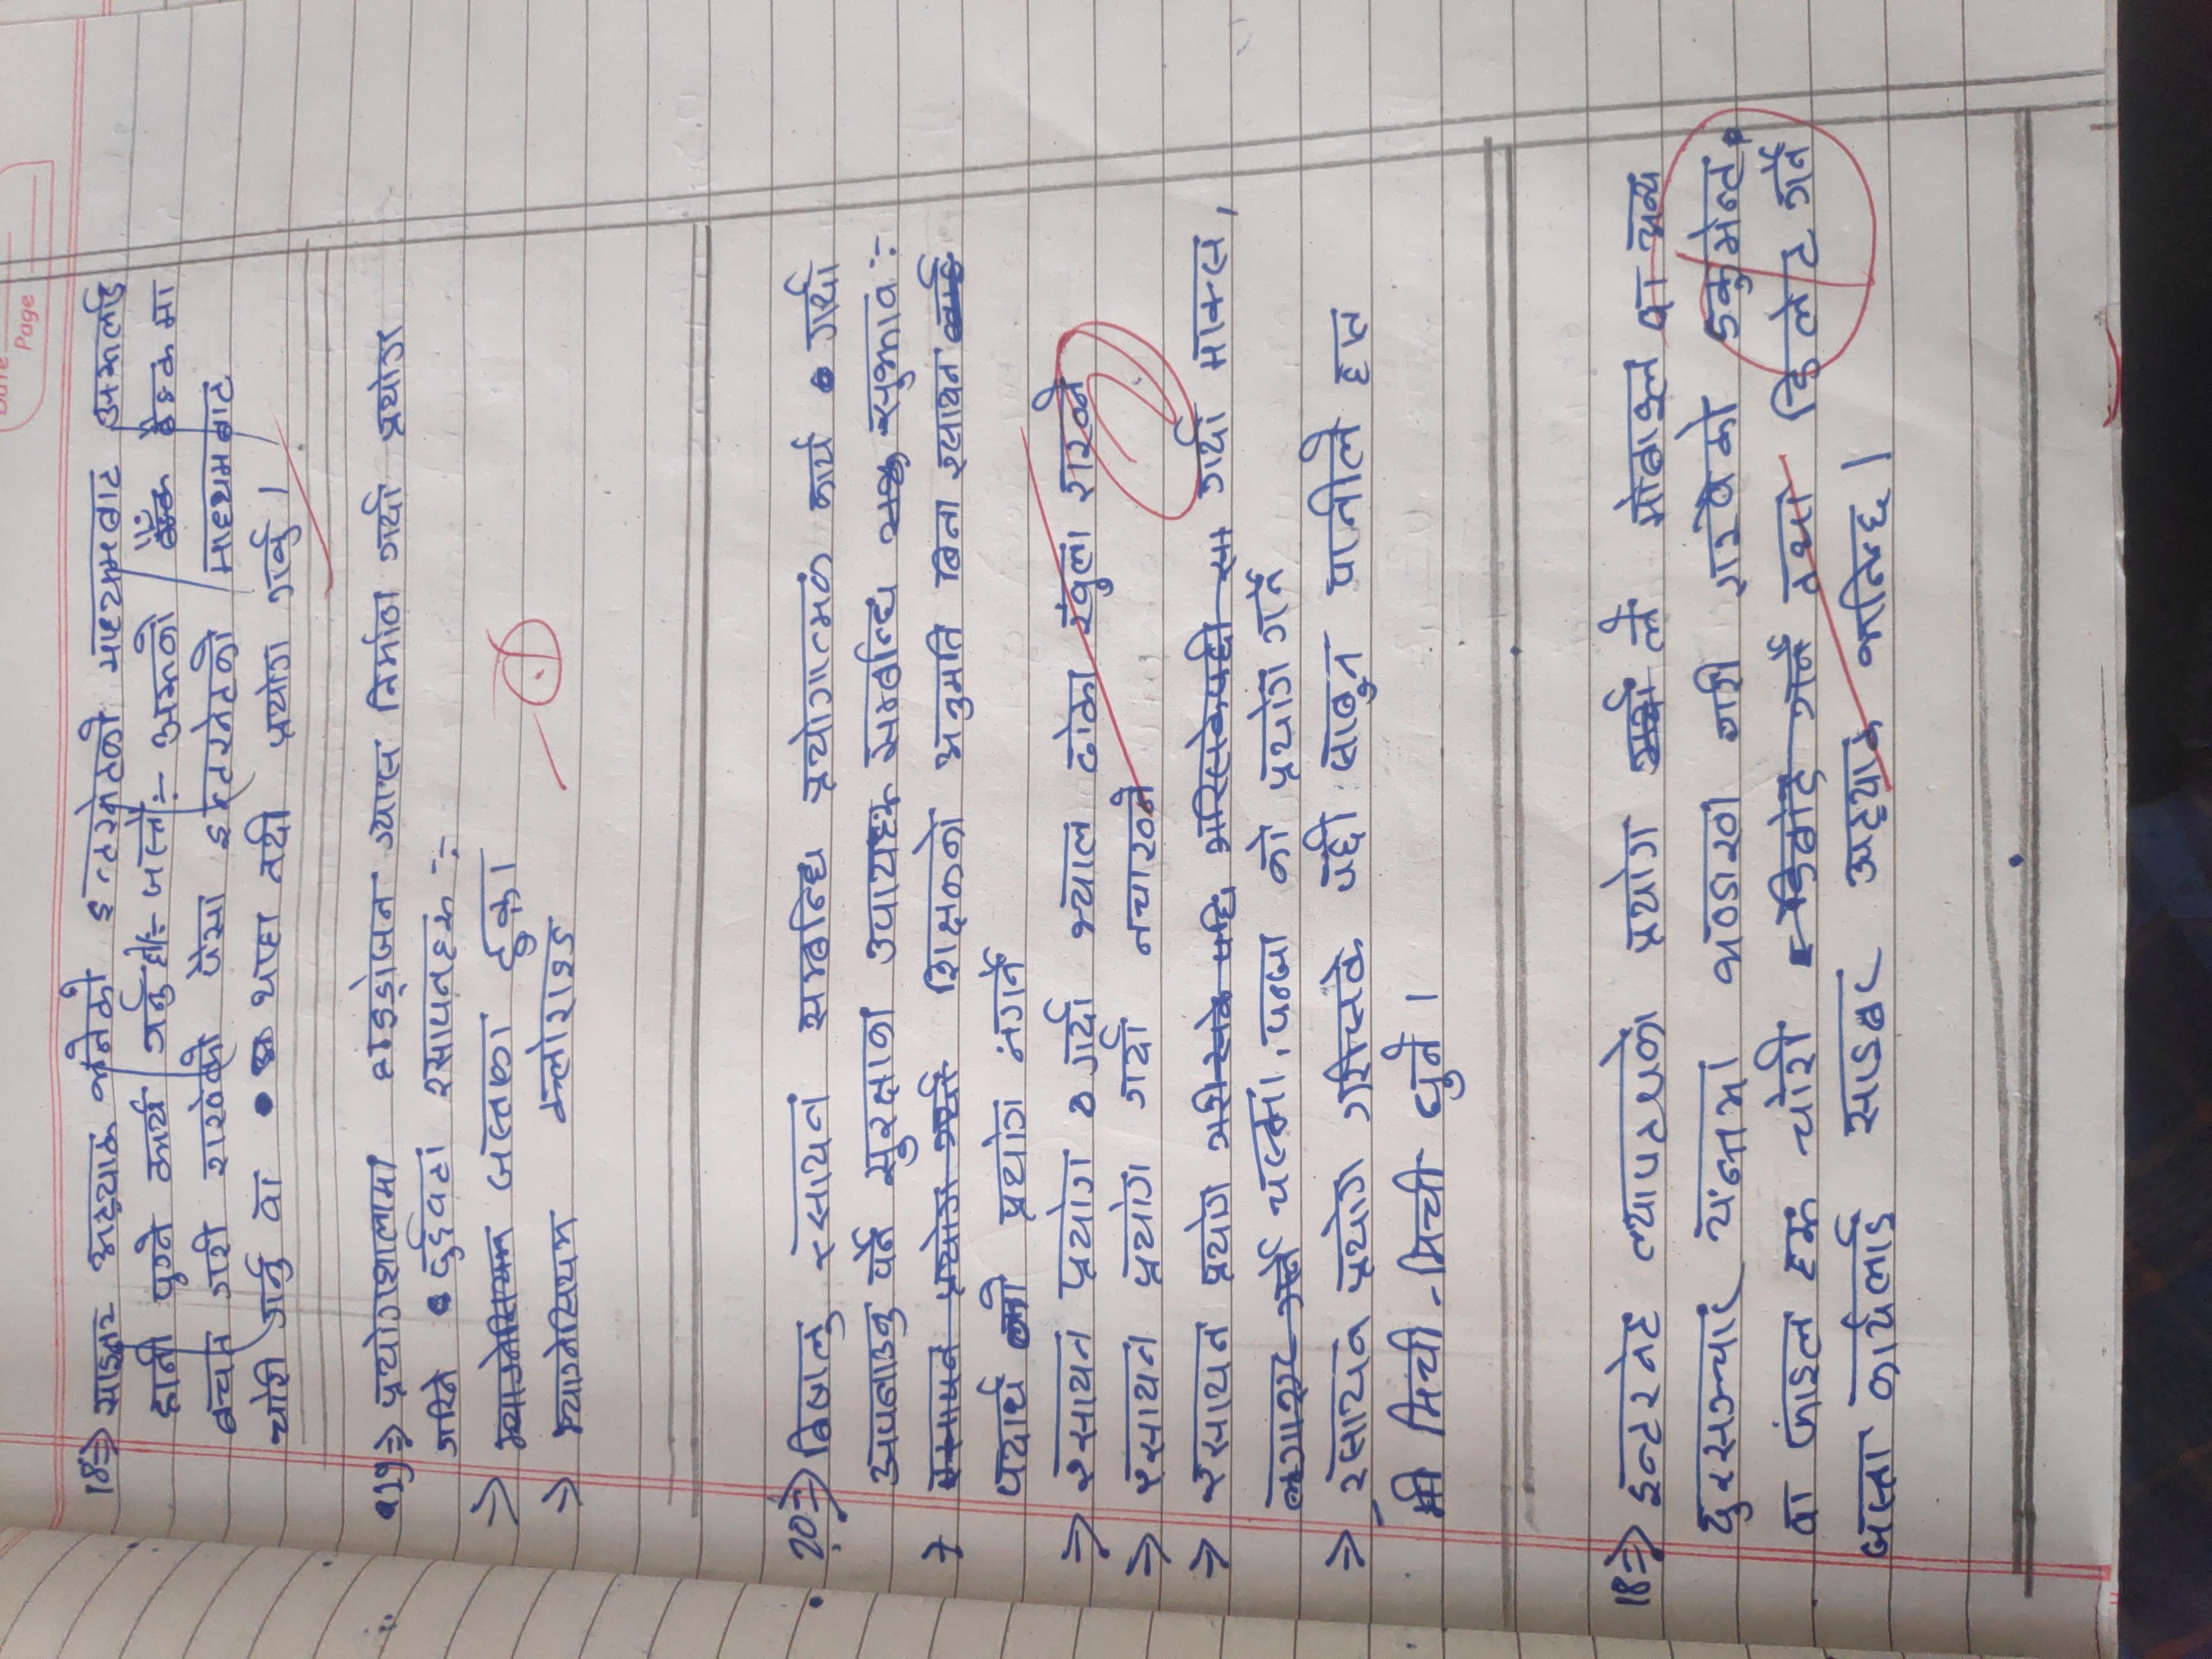 Date
Page
18⇒ साइबर अट्याक भनेको इन्टरनेटको माध्यमबाट अरूलाई
हानी पुग्ने कार्य गर्नु हो:- जस्तै:- अरूको बैंक बैङ्क मा
बचत गरी राखेको पैसा इन्टरनेटको माध्यमबाट
चोरी गर्नु वा थाहा नदी प्रयोग गर्नु ।
19⇒ प्रयोगशालामा हाइड्रोजन ग्यास निर्माण गर्दा प्रयोग
गरिने दुईवटा रसायनहरू :-
⇒ म्याग्नेसियम जस्ताका टुक्रा
⇒ म्याग्नेसियम क्लोराइड
20⇒ बिषालु रसायन सम्बन्धि प्रयोगात्मक कार्य गर्दा
अपनाउनु पर्ने सुरक्षाका उपायहरू सम्बन्धि सुझाव :-
→ रसायन प्रयोग गर्दा शिक्षकको अनुमति बिना रसायन लाई
पदार्थ को प्रयोग नगर्ने
⇒ रसायन प्रयोग गर्दा भ्याल ढोका खुला राख्ने
⇒ रसायन प्रयोग गर्दा नचाख्ने
⇒ रसायन प्रयोग गरी सके पछि गरिसकेपछी गर्दा माक्स,
लगाएर गर्ने चस्मा, पन्जा को प्रयोग गर्ने
⇒ रसायन प्रयोग गरीसके पछी साबुन पानीले हात
मी मिची-मिची धुने ।
18⇒ इन्टरनेट ल्यापटपको प्रयोग गर्दा ले मोबाइल वा अन्य
दुरसञ्चार यन्त्रमा भण्डारण गरी राखेको डकुमेन्ट
वा फाइल हरू चोरी गर्ने तथा डिलेट गर्ने
जस्ता कार्यलाई साइबर अट्याक भनिन्छ ।